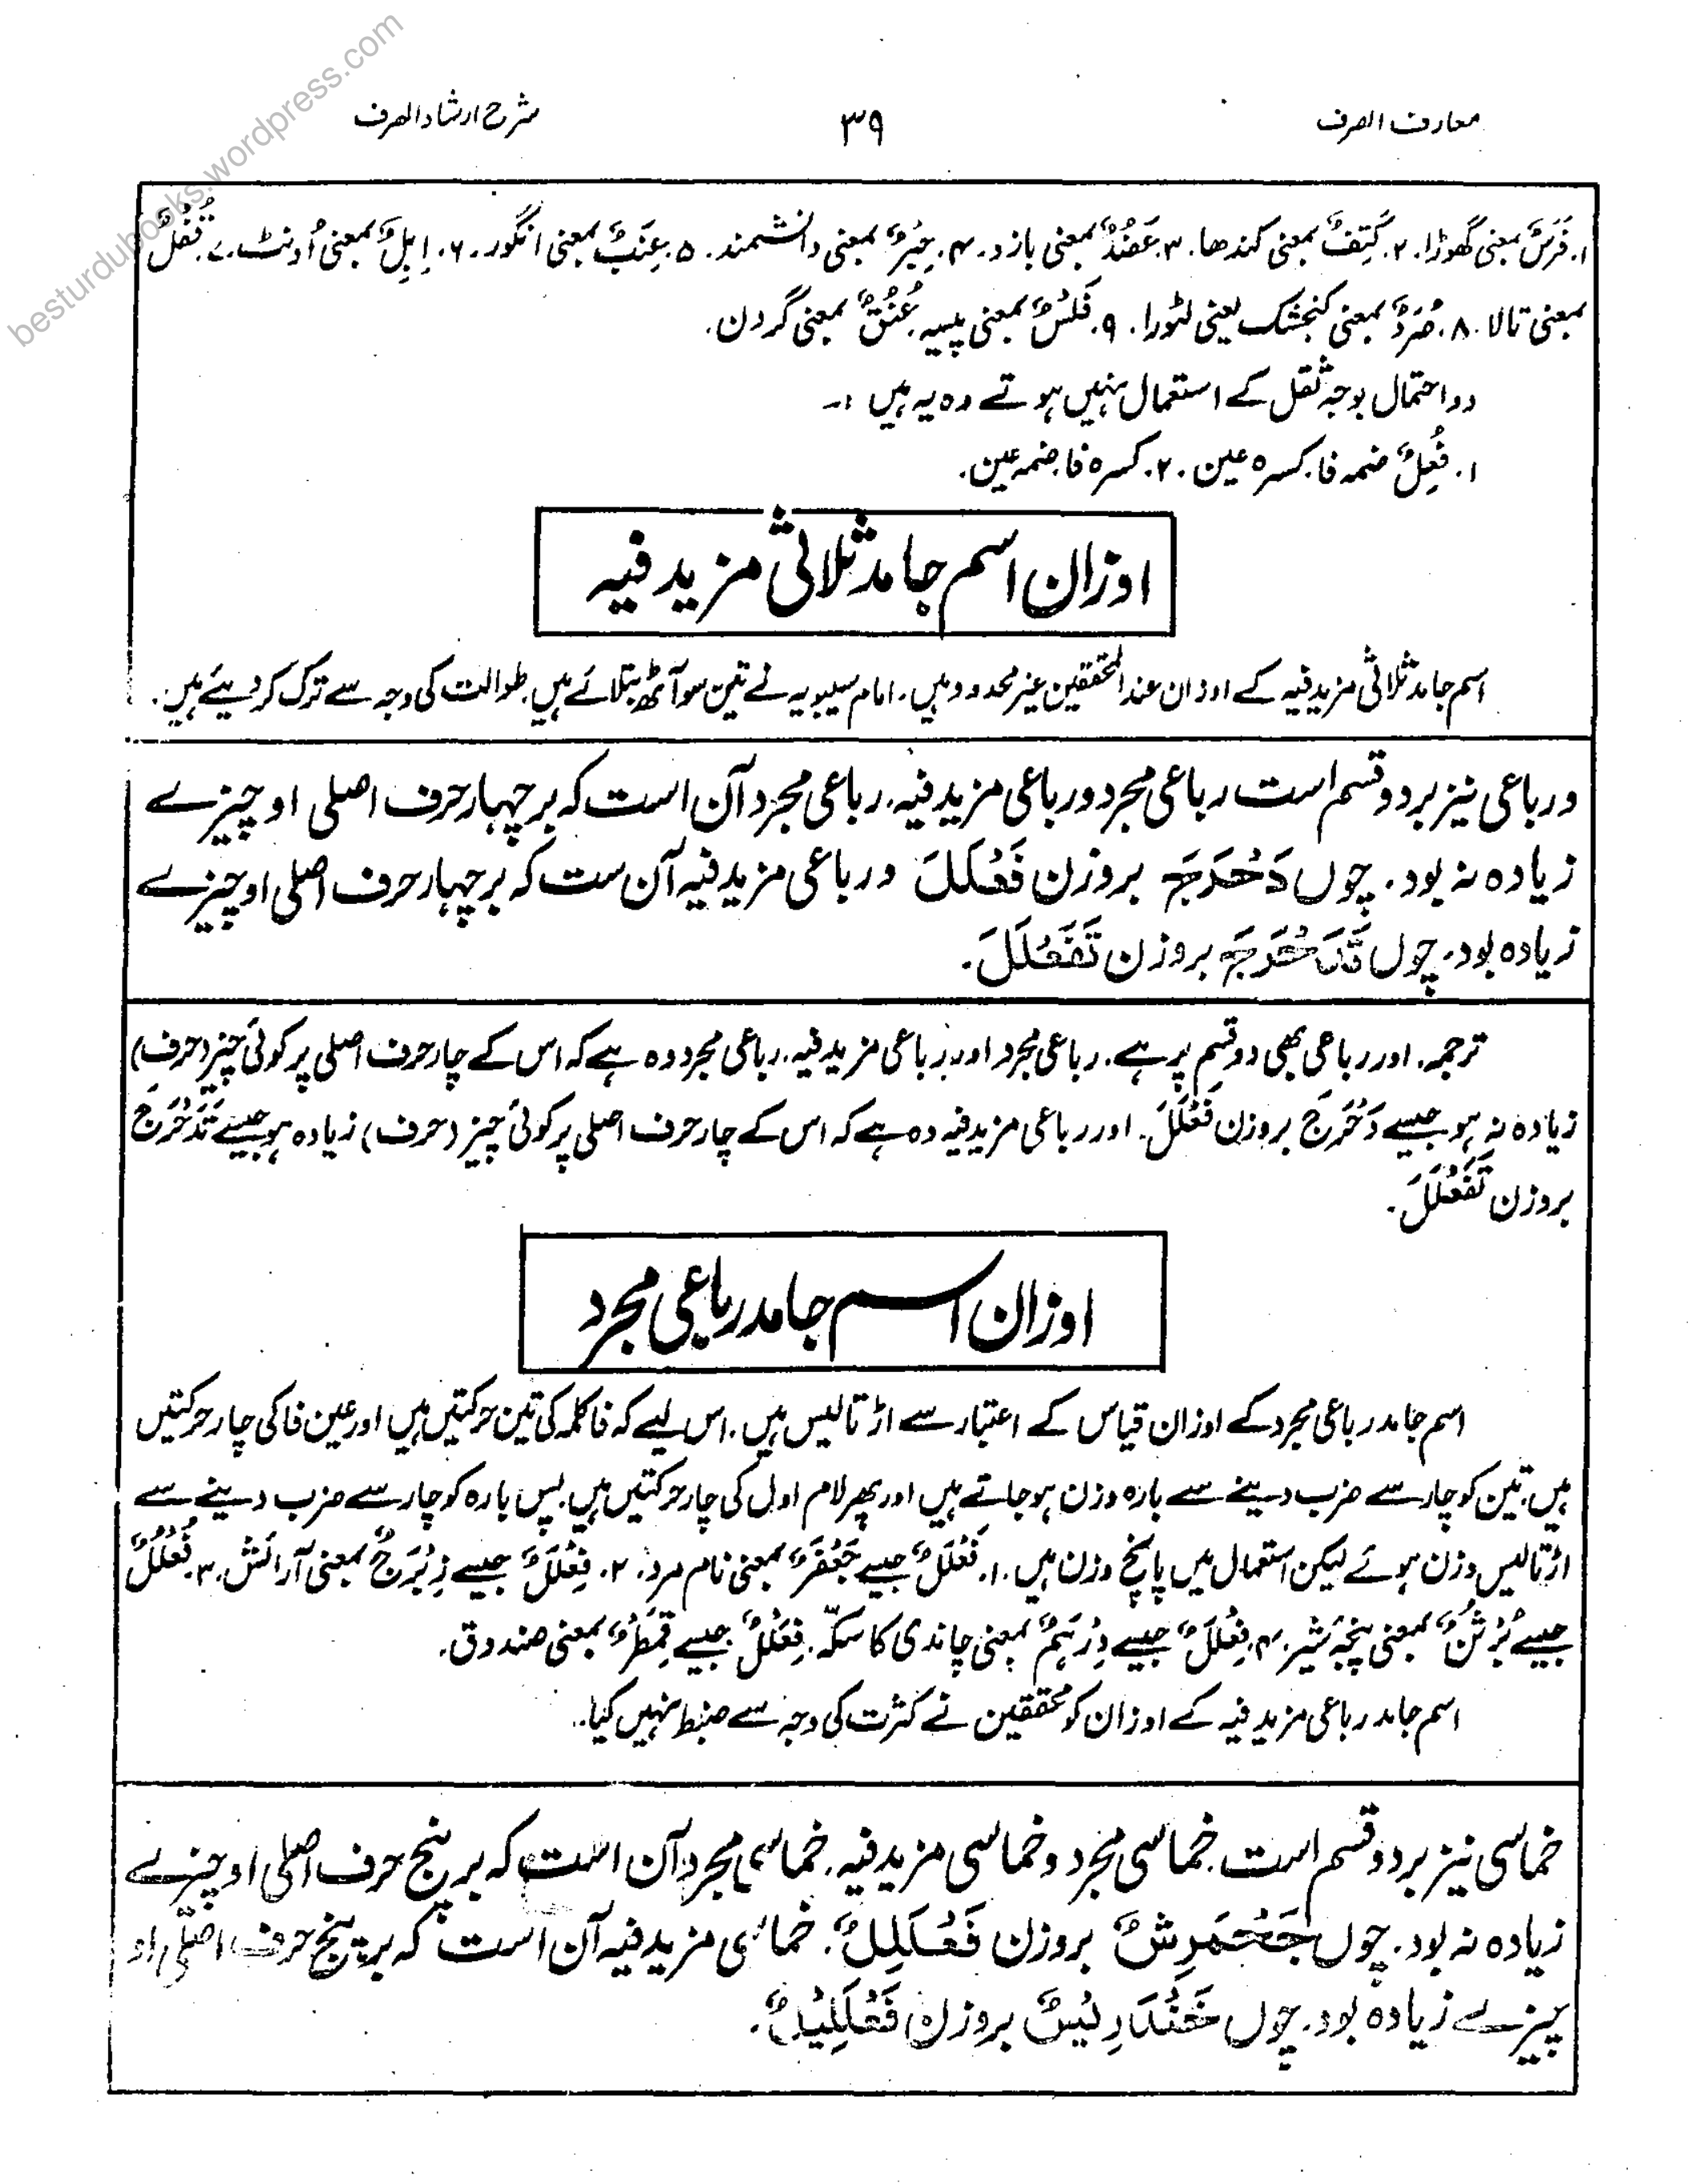 معارف الصرف
۳۹
شرح ارشاد الصرف
besturdubooks.wordpress.com
۱. فَرَسٌ بمعنی گھوڑا. ۲. کَتِفٌ بمعنی کندھا. ۳. عَضُدٌ بمعنی بازو. ۴. حِبْرٌ بمعنی دانشمند. ۵. عِنَبٌ بمعنی انگور. ۶. اِبِلٌ بمعنی اُونٹ. ۷. قُفْلٌ
بمعنی تالا. ۸. صُرَدٌ بمعنی کنجشک یعنی لٹورا. ۹. فَلْسٌ بمعنی پیسہ. عُنُقٌ بمعنی گردن.
دو احتمال بوجہ ثقل کے استعمال نہیں ہوتے وہ یہ ہیں :۔
۱. فُعِلٌ ضمہ فا. کسرہ عین. ۲. کسرہ فا. ضمہ عین.
اوزان اسم جامد ثلاثی مزید فیہ
اسم جامد ثلاثی مزید فیہ کے اوزان عند المحققین غیر محدود ہیں. امام سیبویہ نے تین سو آٹھ بتلائے ہیں. طوالت کی وجہ سے ترک کر دیئے ہیں.
و رباعی نیز بر دو قسم است رباعی مجرد و رباعی مزید فیہ. رباعی مجرد آن است کہ بر چہار حرف اصلی او چیزے
زیادہ نہ بود. چوں دَحْرَجَ بروزن فَعْلَلَ و رباعی مزید فیہ آن ست کہ بر چہار حرف اصلی او چیزے
زیادہ بود. چوں تَدَحْرَجَ بروزن تَفَعْلَلَ.
ترجمہ. اور رباعی بھی دو قسم پر ہے. رباعی مجرد اور رباعی مزید فیہ. رباعی مجرد وہ ہے کہ اس کے چار حرف اصلی پر کوئی چیز (حرف)
زیادہ نہ ہو جیسے دَحْرَجَ بروزن فَعْلَلَ. اور رباعی مزید فیہ وہ ہے کہ اس کے چار حرف اصلی پر کوئی چیز (حرف) زیادہ ہو جیسے تَدَحْرَجَ
بروزن تَفَعْلَلَ.
اوزان اسم جامد رباعی مجرد
اسم جامد رباعی مجرد کے اوزان قیاس کے اعتبار سے اڑتالیس ہیں. اس لیے کہ فا کلمہ کی تین حرکتیں ہیں اور عین فا کی چار حرکتیں
ہیں. تین کو چار سے ضرب دینے سے بارہ وزن ہو جاتے ہیں اور پھر لام اول کی چار حرکتیں ہیں. پس بارہ کو چار سے ضرب دینے سے
اڑتالیس وزن ہوئے لیکن استعمال میں پانچ وزن ہیں. ۱. فَعْلَلٌ جیسے جَعْفَرٌ بمعنی نام مرد. ۲. فِعْلَلٌ جیسے زِبْرَجٌ بمعنی آرائش. ۳. فُعْلُلٌ
جیسے بُرْثُنٌ بمعنی پنجۂ شیر. ۴. فِعْلَلٌ جیسے دِرْہَمٌ بمعنی چاندی کا سکہّ. فِعَلْلٌ جیسے قِمَطْرٌ بمعنی صندوق.
اسم جامد رباعی مزید فیہ کے اوزان کو محققین نے کثرت کی وجہ سے ضبط نہیں کیا.
خماسی نیز بر دو قسم است. خماسی مجرد و خماسی مزید فیہ. خماسی مجرد آن است کہ بر پنج حرف اصلی او چیزے
زیادہ نہ بود. چوں جَحْمَرِشٌ بروزن فَعْلَلِلٌ. خماسی مزید فیہ آن است کہ بر پنج حرف اصلی او
چیزے زیادہ بود. چوں خَنْدَرِیْسٌ بروزن فَعْلَلِیْلٌ.